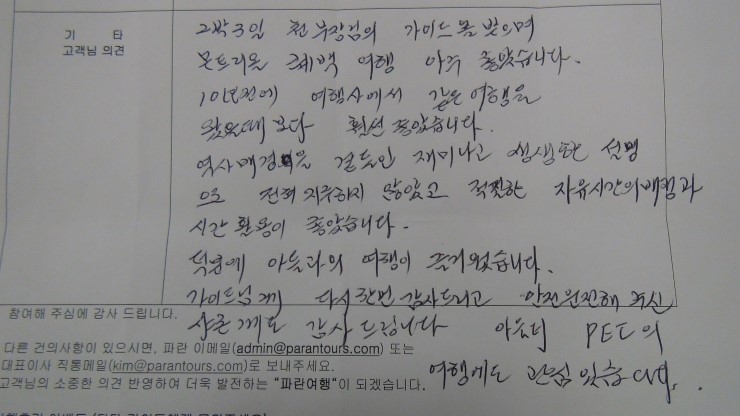 기 타
고객님 의견
2박3일 천 부장님의 가이드를 받으며
몬트리올 퀘백 여행 아주 좋았습니다.
10년전에 여행사에서 같은 여행을
왔을때 보다 훨씬 좋았습니다.
역사배경을 곁들인 재미나고 생생한 설명
으로 전혀 지루하지 않았고 적절한 자유시간의 배정과
시간 활용이 좋았습니다.
덕분에 아들과의 여행이 즐거웠습니다.
가이드님께 다시한번 감사드리고 안전운전해 주신
께도 감사드립니다 PEI의
여행에도 관심 있습니다.
참여해 주심에 감사 드립니다.
다른 건의사항이 있으시면, 파란 이메일(admin@parantours.com) 또는
대표이사 직통메일(kim@parantours.com)로 보내주세요.
고객님의 소중한 의견 반영하여 더욱 발전하는 "파란여행"이 되겠습니다.